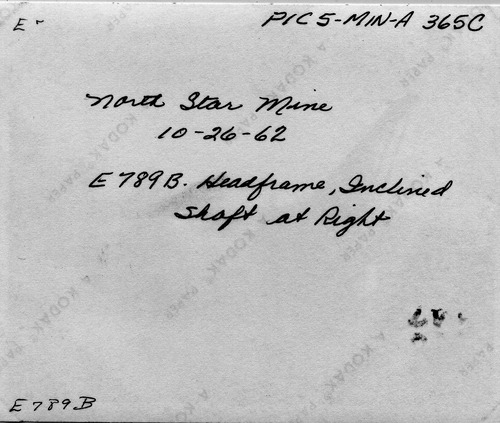 E-
PIC 5-MIN-A 365C
North Star Mine
10-26-62
E789B. Headframe, Inclined
Shaft at Right
A KODAK PAPER
E789B